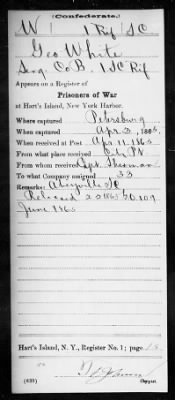 (Confederate.)
W 1 Rif SC
Geo White
Serg Co B. 1 SC Rif
Appears on a Register of
Prisoners of War
at Hart's Island, New York Harbor.
Where captured Petersburg
When captured Apr 3, 1865.
When received at Post Apr 11, 1865
From what place received City Pt
From whom received Capt Sherman
To what company assigned 33
Remarks: Abbeyville SC
Released GO 109
June 1865
Hart's Island, N. Y., Register No. 1; page 15
(639) Copyist.